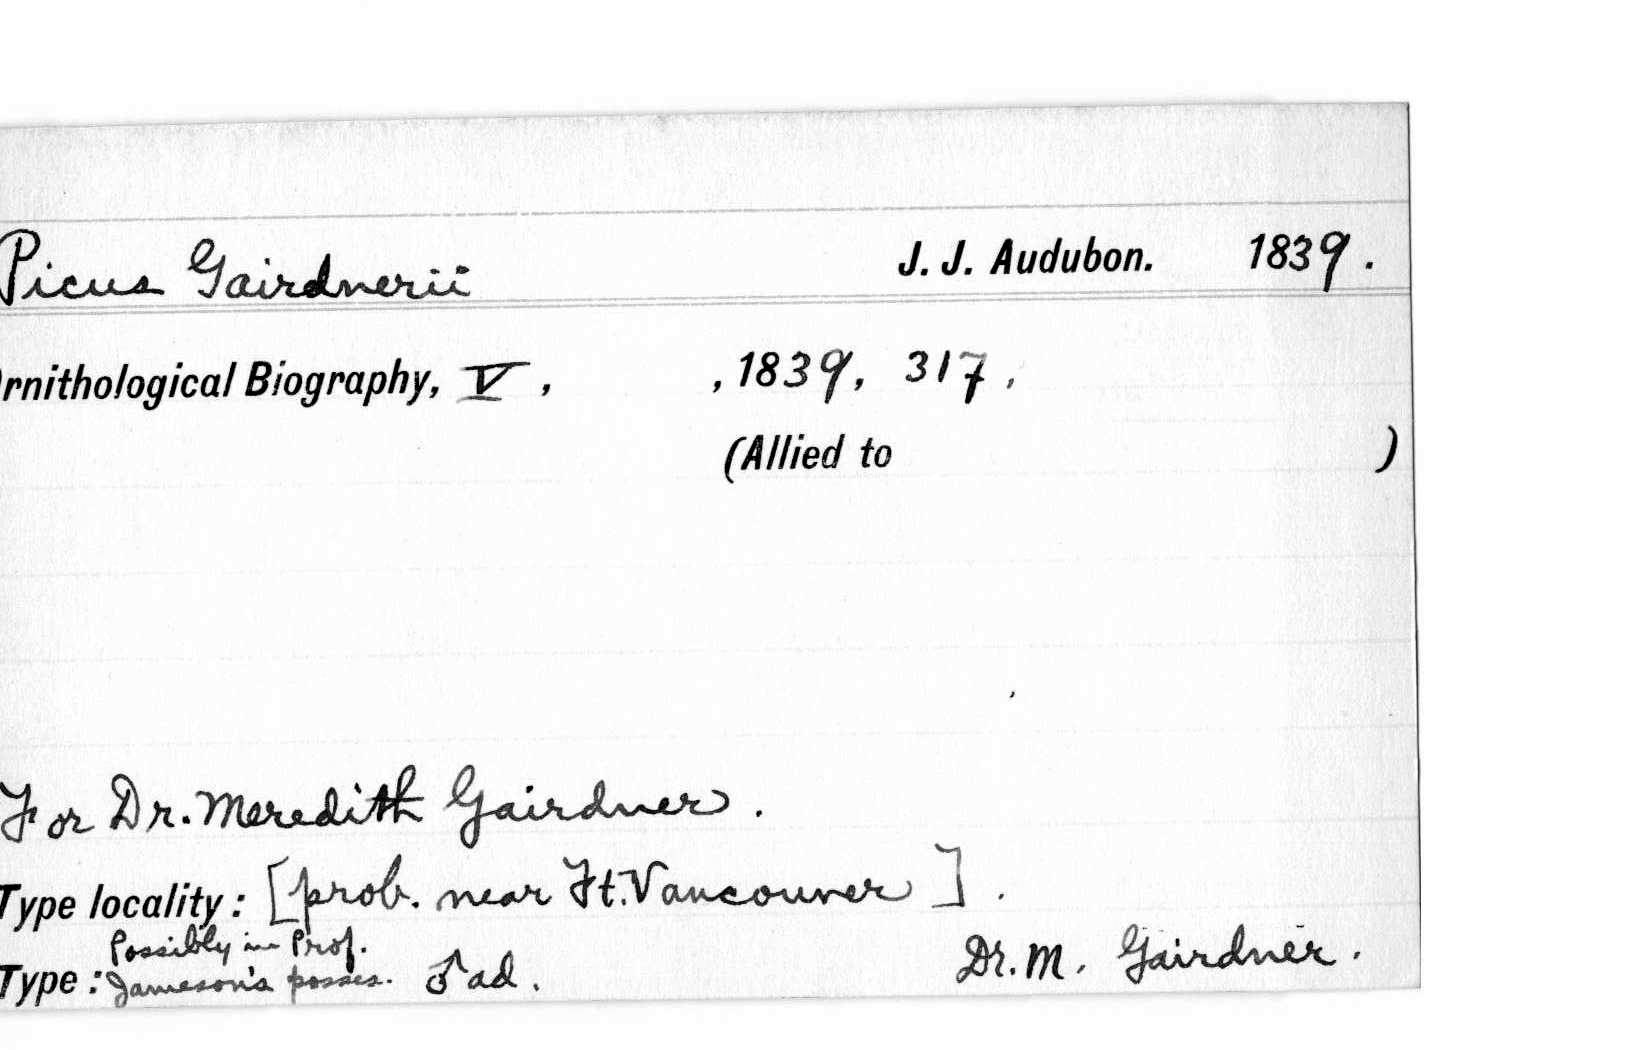 Picus Gairdnerii J. J. Audubon. 1839.
rnithological Biography, V, , 1839, 317,
(Allied to )
For Dr. Meredith Gairdner.
Type locality: [prob. near Ft. Vancouver].
Possibly in Prof.
Type: Jameson's posses. ♂ ad. Dr. M. Gairdner.